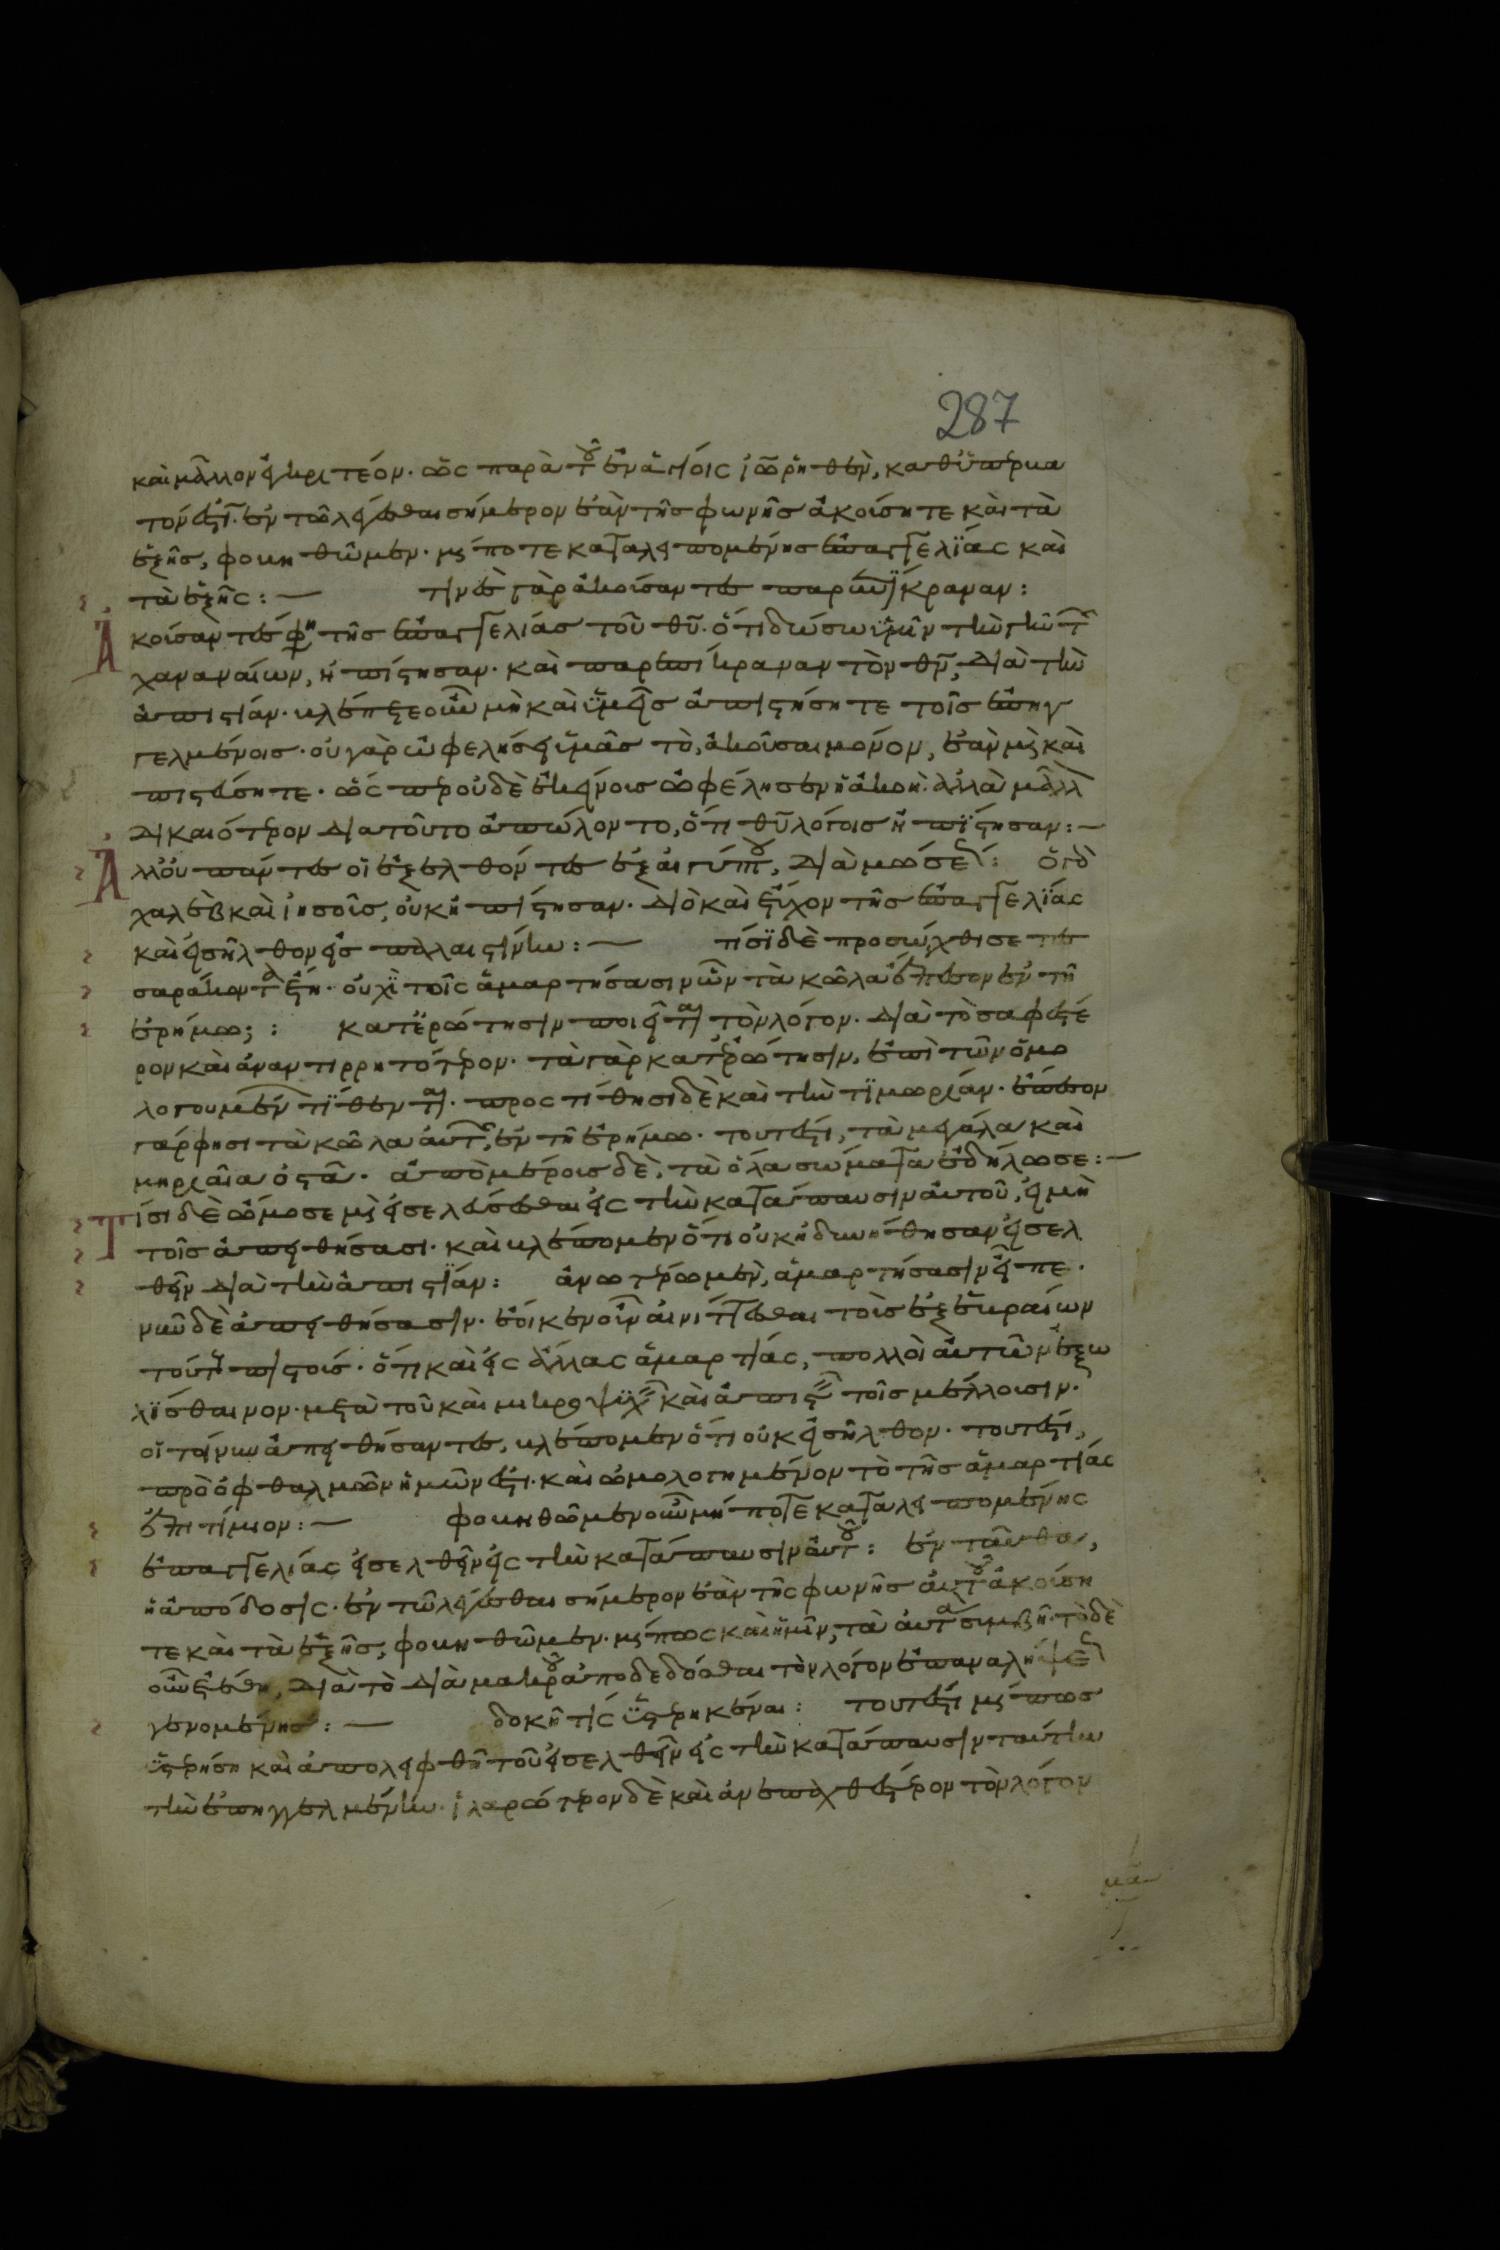 287
καὶ μᾶλλον ἐγκριτέον. ὡς παρὰ τοῦ ἐν ἁγίοις ἰω ῥηθὲν, καθ' ὑπέρβα
τόν ἐστι. ἐν τῶ λέγεσθαι σήμερον ἐὰν τῆς φωνῆς ἀκούσητε καὶ τὰ
ἑξῆς, φοβηθῶμεν. μή ποτε καταλειπομένης ἐπαγγελίας καὶ
τὰ ἑξῆς: τινὲς γὰρ ἀκούσαντες παρεπίκραναν:
Ἀκούσαντές φη τῆς ἐπαγγελίας τοῦ θυ. ὅτι δώσω ὑμῖν τὴν γῆν τῶν
χαναναίων, ἠπίστησαν. καὶ παρεπίκραναν τὸν θν, διὰ τὴν
ἀπιστίαν. βλέπετε οὖν μὴ καὶ ὑμεῖς ἀπιστήσητε τοῖς ἐπηγ
γελμένοις. οὐ γὰρ ὠφελήσει ὑμᾶς τὸ, ἀκοῦσαι μόνον, ἐὰν μὴ καὶ
πιστεύσητε. ὥσπερ οὐδὲ ἐκείνοις ὠφέλησεν ἡ ἀκοή. ἀλλὰ μᾶλλ
δικαιότερον διατοῦτο ἀπώλοντο, ὅτι θυ λόγοις ἠπίστησαν:
Ἀλλ' οὐ πάντες οἱ ἐξελθόντες ἐξ αἰγύπτου, διὰ μωσέως: ὅ γε
χαλὲβ καὶ ἰησοῦς, οὐκ ἠπίστησαν. διὸ καὶ ἔτυχον τῆς ἐπαγγελίας
καὶ εἰσῆλθον εἰς παλαιστίνην: τίσι δὲ προσώχθισε τεσ
σαράκοντα ἔτη. οὐχὶ τοῖς ἁμαρτήσασιν ὧν τὰ κῶλα ἔπεσον ἐν τῆ
ἐρήμω; : κατ' ἐρώτησιν ποιεῖται τὸν λόγον. διὰ τὸ σαφέστε
ρον καὶ ἀναντιρρητότερον. τὰ γὰρ κατ' ἐρώτησιν, ἐπὶ τῶν ὁμο
λογουμένων τίθενται. προστίθησι δὲ καὶ τὴν τιμωρίαν. ἔπεσον
γάρ φησι τὰ κῶλα αὐτῶν, ἐν τῆ ἐρήμω. τουτέστι, τὰ μεγάλα καὶ
μηριαῖα ὀστᾶ. ἀπὸ μέρους δὲ, τὰ ὅλα σώματα ἐδήλωσε:
Τίσι δὲ ὤμοσε μὴ εἰσελεύσεσθαι εἰς τὴν κατάπαυσιν αὐτοῦ, εἰ μὴ
τοῖς ἀπειθήσασι. καὶ βλέπομεν ὅτι οὐκ ἠδυνήθησαν εἰσελ
θεῖν διὰ τὴν ἀπιστίαν: ἀνωτέρω μὲν, ἁμαρτήσασιν εἶπε.
νῦν δὲ ἀπειθήσασιν. ἔοικεν οὖν αἰνίττεσθαι τοῖς ἐξ ἑβραίων
τούτοις πιστοῖς. ὅτι καὶ εἰς ἄλλας ἁμαρτίας, πολλοὶ αὐτῶν ἐξω
λίσθαινον. μετὰ τοῦ καὶ μικροψυχεῖν καὶ ἀπιστεῖν τοῖς μέλλουσιν.
οἱ τοίνυν ἀπειθήσαντες, βλέπομεν ὅτι οὐκ εἰσῆλθον. τουτέστι,
πρὸ ὀφθαλμῶν ἡμῶν ἐστι. καὶ ὡμολογημένον τὸ τῆς ἁμαρτίας
ἐπιτίμιον: φοβηθῶμεν οὖν μήποτε καταλειπομένης
ἐπαγγελίας εἰσελθεῖν εἰς τὴν κατάπαυσιν αὐτοῦ: ἐν ταῦθα,
ἡ ἀπόδοσις. ἐν τῶ λέγεσθαι σήμερον ἐὰν τῆς φωνῆς αὐτοῦ ἀκούση
τε καὶ τὰ ἑξῆς, φοβηθῶμεν. μή πως καὶ ἡμῖν, τὰ αὐτὰ συμβῆ. τὸ δὲ
οὖν ἐτέθη, διὰ τὸ διὰ μακροῦ ἀποδεδόσθαι τὸν λόγον ἐπαναλήψεως
γενομένης: δοκῆ τίς ὑστερηκέναι: τουτέστι μή πως
ὑστερήση καὶ ἀπολειφθῆ τοῦ εἰσελθεῖν εἰς τὴν κατάπαυσιν ταύτην
τὴν ἐπηγγελμένην. ἱλαρώτερον δὲ καὶ ἀνεπαχθέστερον τὸν λόγον